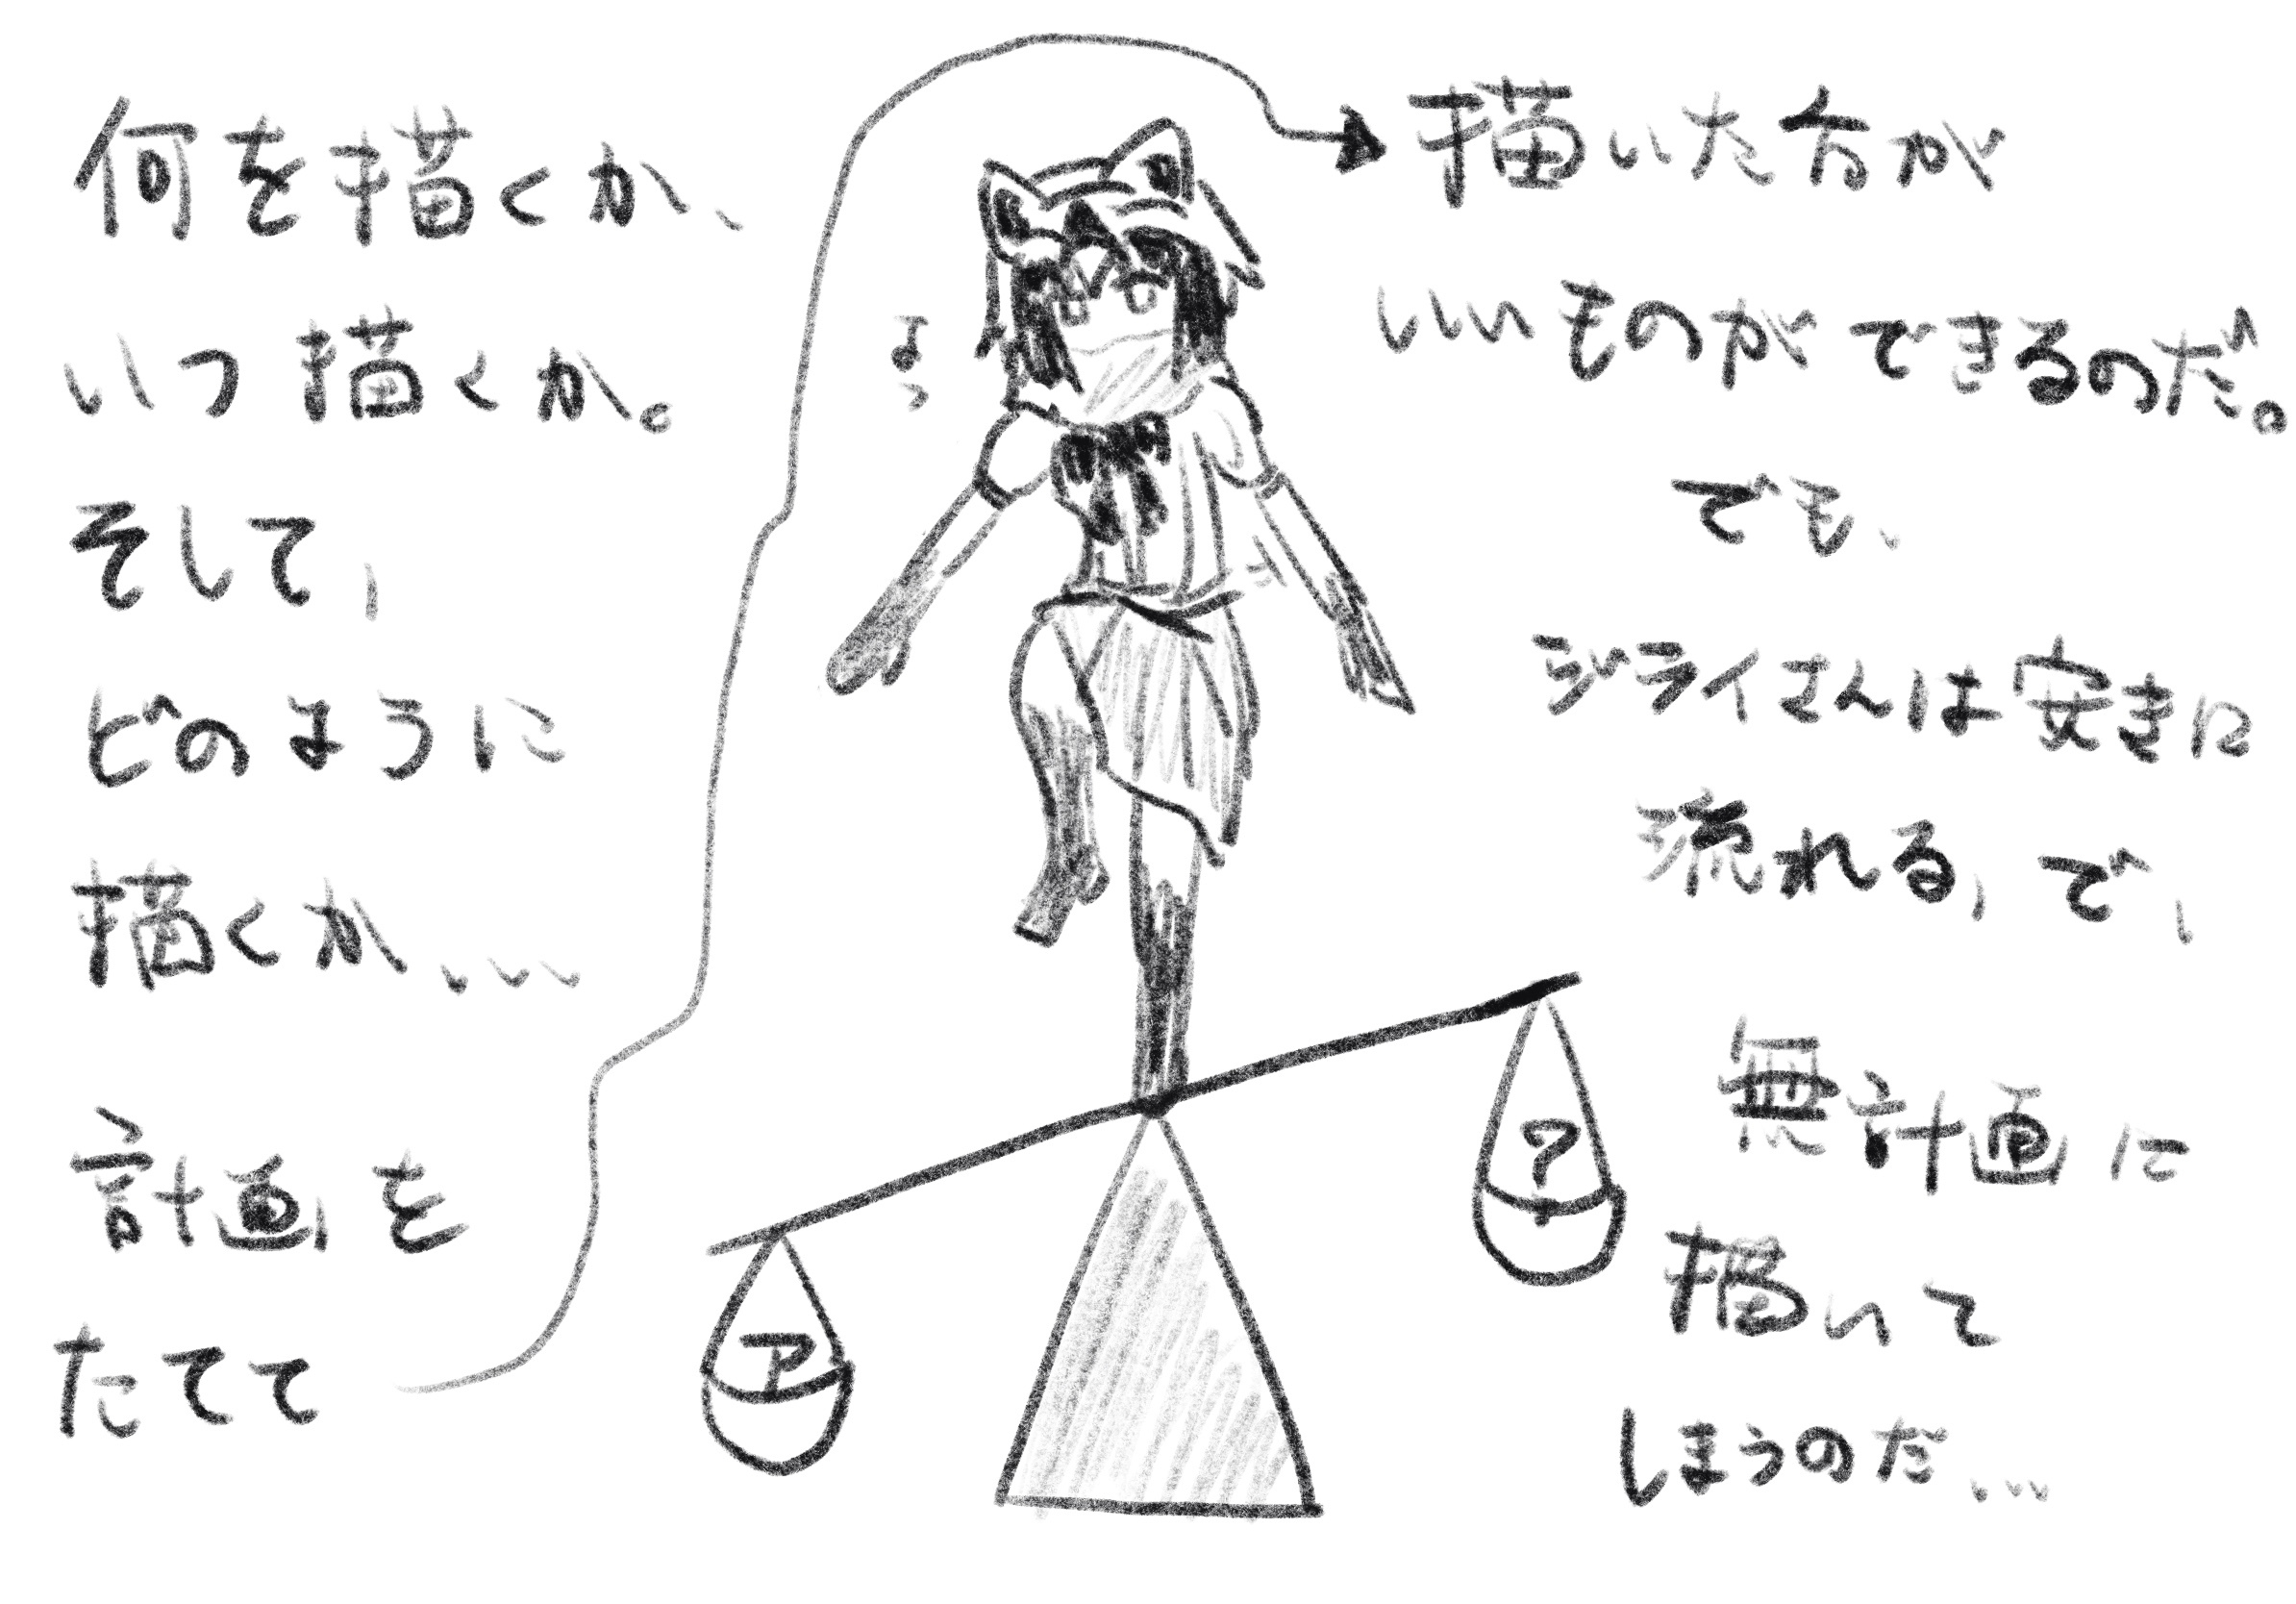 何を描くか、
いつ描くか。
そして、
どのように
描くか、、、
計画を
たてて
描いた方が
いいものができるのだ。
でも、
ジライさんは安きに
流れる、で、
無計画に
描いて
しまうのだ、、、
よっ
ア